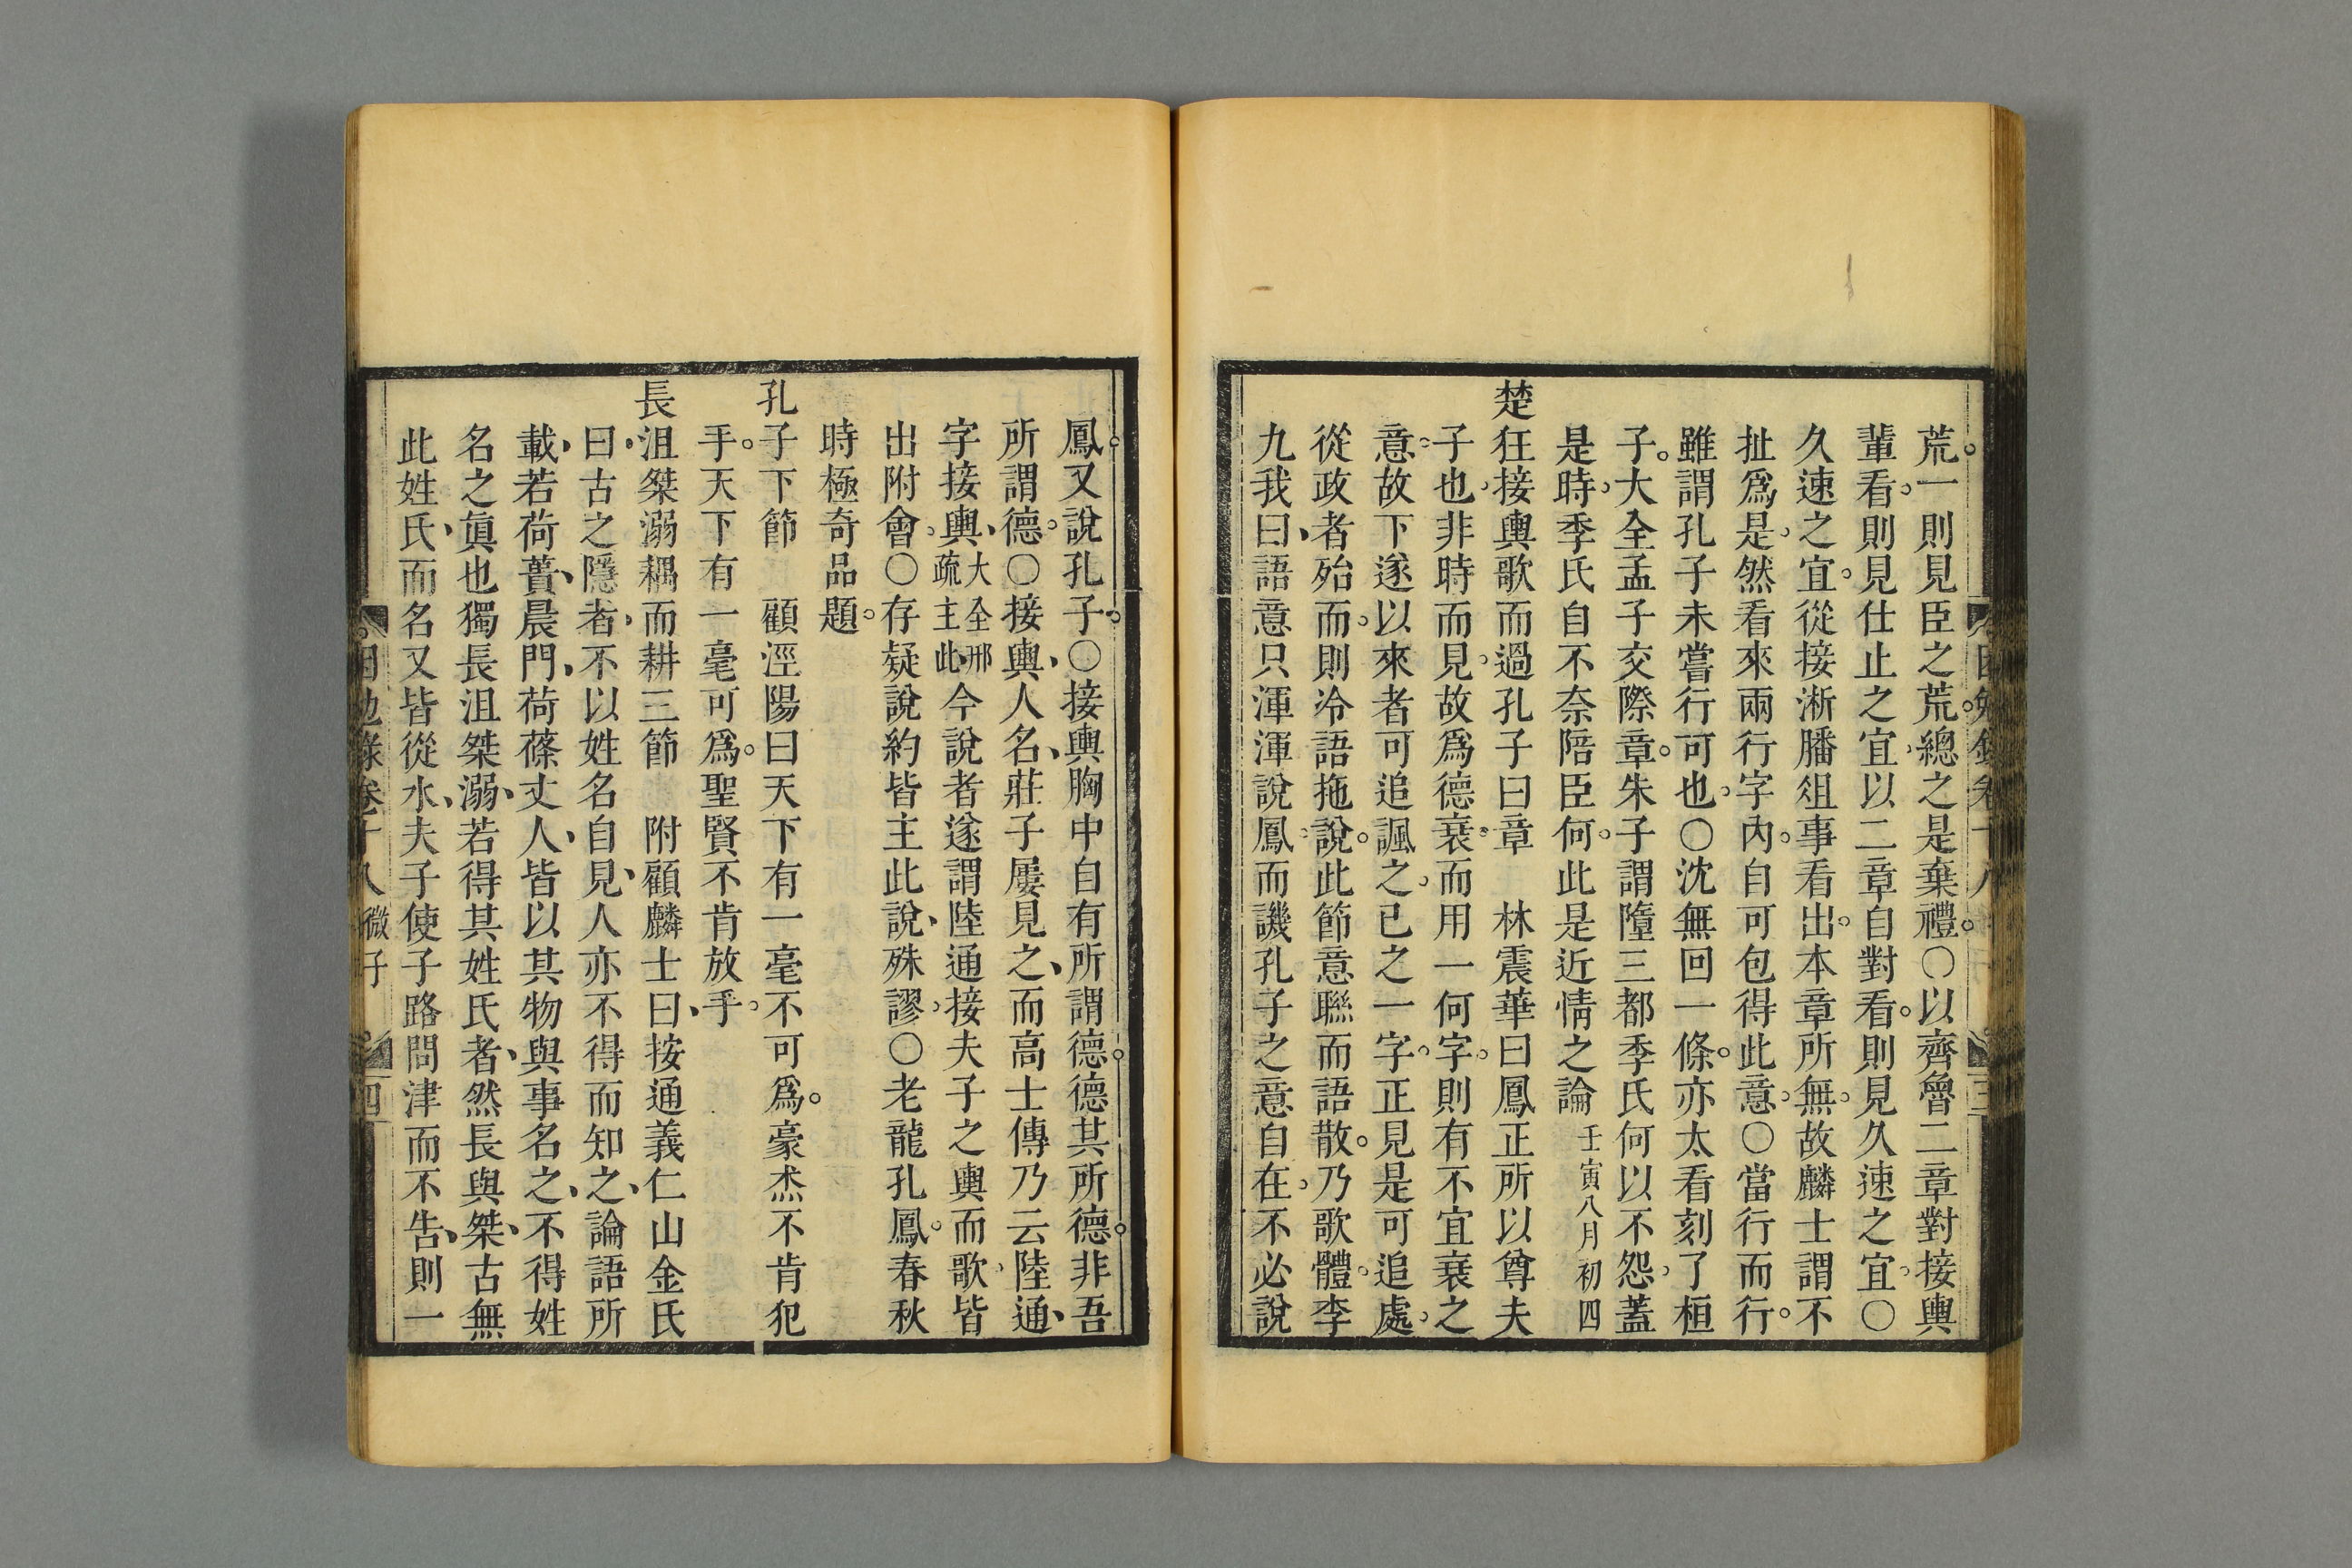 荒一則見臣之荒總之是棄禮〇以齊魯二章對接輿
輩看則見仕止之宜以二章自對看則見久速之宜〇
久速之宜從接淅膰俎事看出本章所無故麟士謂不
扯爲是然看來兩行字內自可包得此意〇當行而行
雖謂孔子未嘗行可也〇沈無回一條亦太看刻了桓
子大全孟子交際章朱子謂墮三都季氏何以不怨蓋
是時季氏自不奈陪臣何此是近情之論壬寅八月初四
楚狂接輿歌而過孔子曰章　林震華曰鳳正所以尊夫
子也非時而見故爲德衰而用一何字則有不宜衰之
意故下遂以來者可追諷之已之一字正見是可追處
從政者殆而則冷語拖說此節意聯而語散乃歌體李
九我曰語意只渾渾說鳳而譏孔子之意自在不必說
鳳又說孔子〇接輿胸中自有所謂德德其所德非吾
所謂德〇接輿人名莊子屢見之而高士傳乃云陸通
字接輿大全邢疏主此今說者遂謂陸通接夫子之輿而歌皆
出附會〇存疑說約皆主此說殊謬〇老龍孔鳳春秋
時極奇品題
孔子下節　顧涇陽曰天下有一毫不可爲豪杰不肯犯
手天下有一毫可爲聖賢不肯放乎
長沮桀溺耦而耕三節　附顧麟士曰按通義仁山金氏
曰古之隱者不以姓名自見人亦不得而知之論語所
載若荷蕢晨門荷蓧丈人皆以其物與事名之不得姓
名之眞也獨長沮桀溺若得其姓氏者然長與桀古無
此姓氏而名又皆從水夫子使子路問津而不告則一
困勉錄卷十八　微子　四